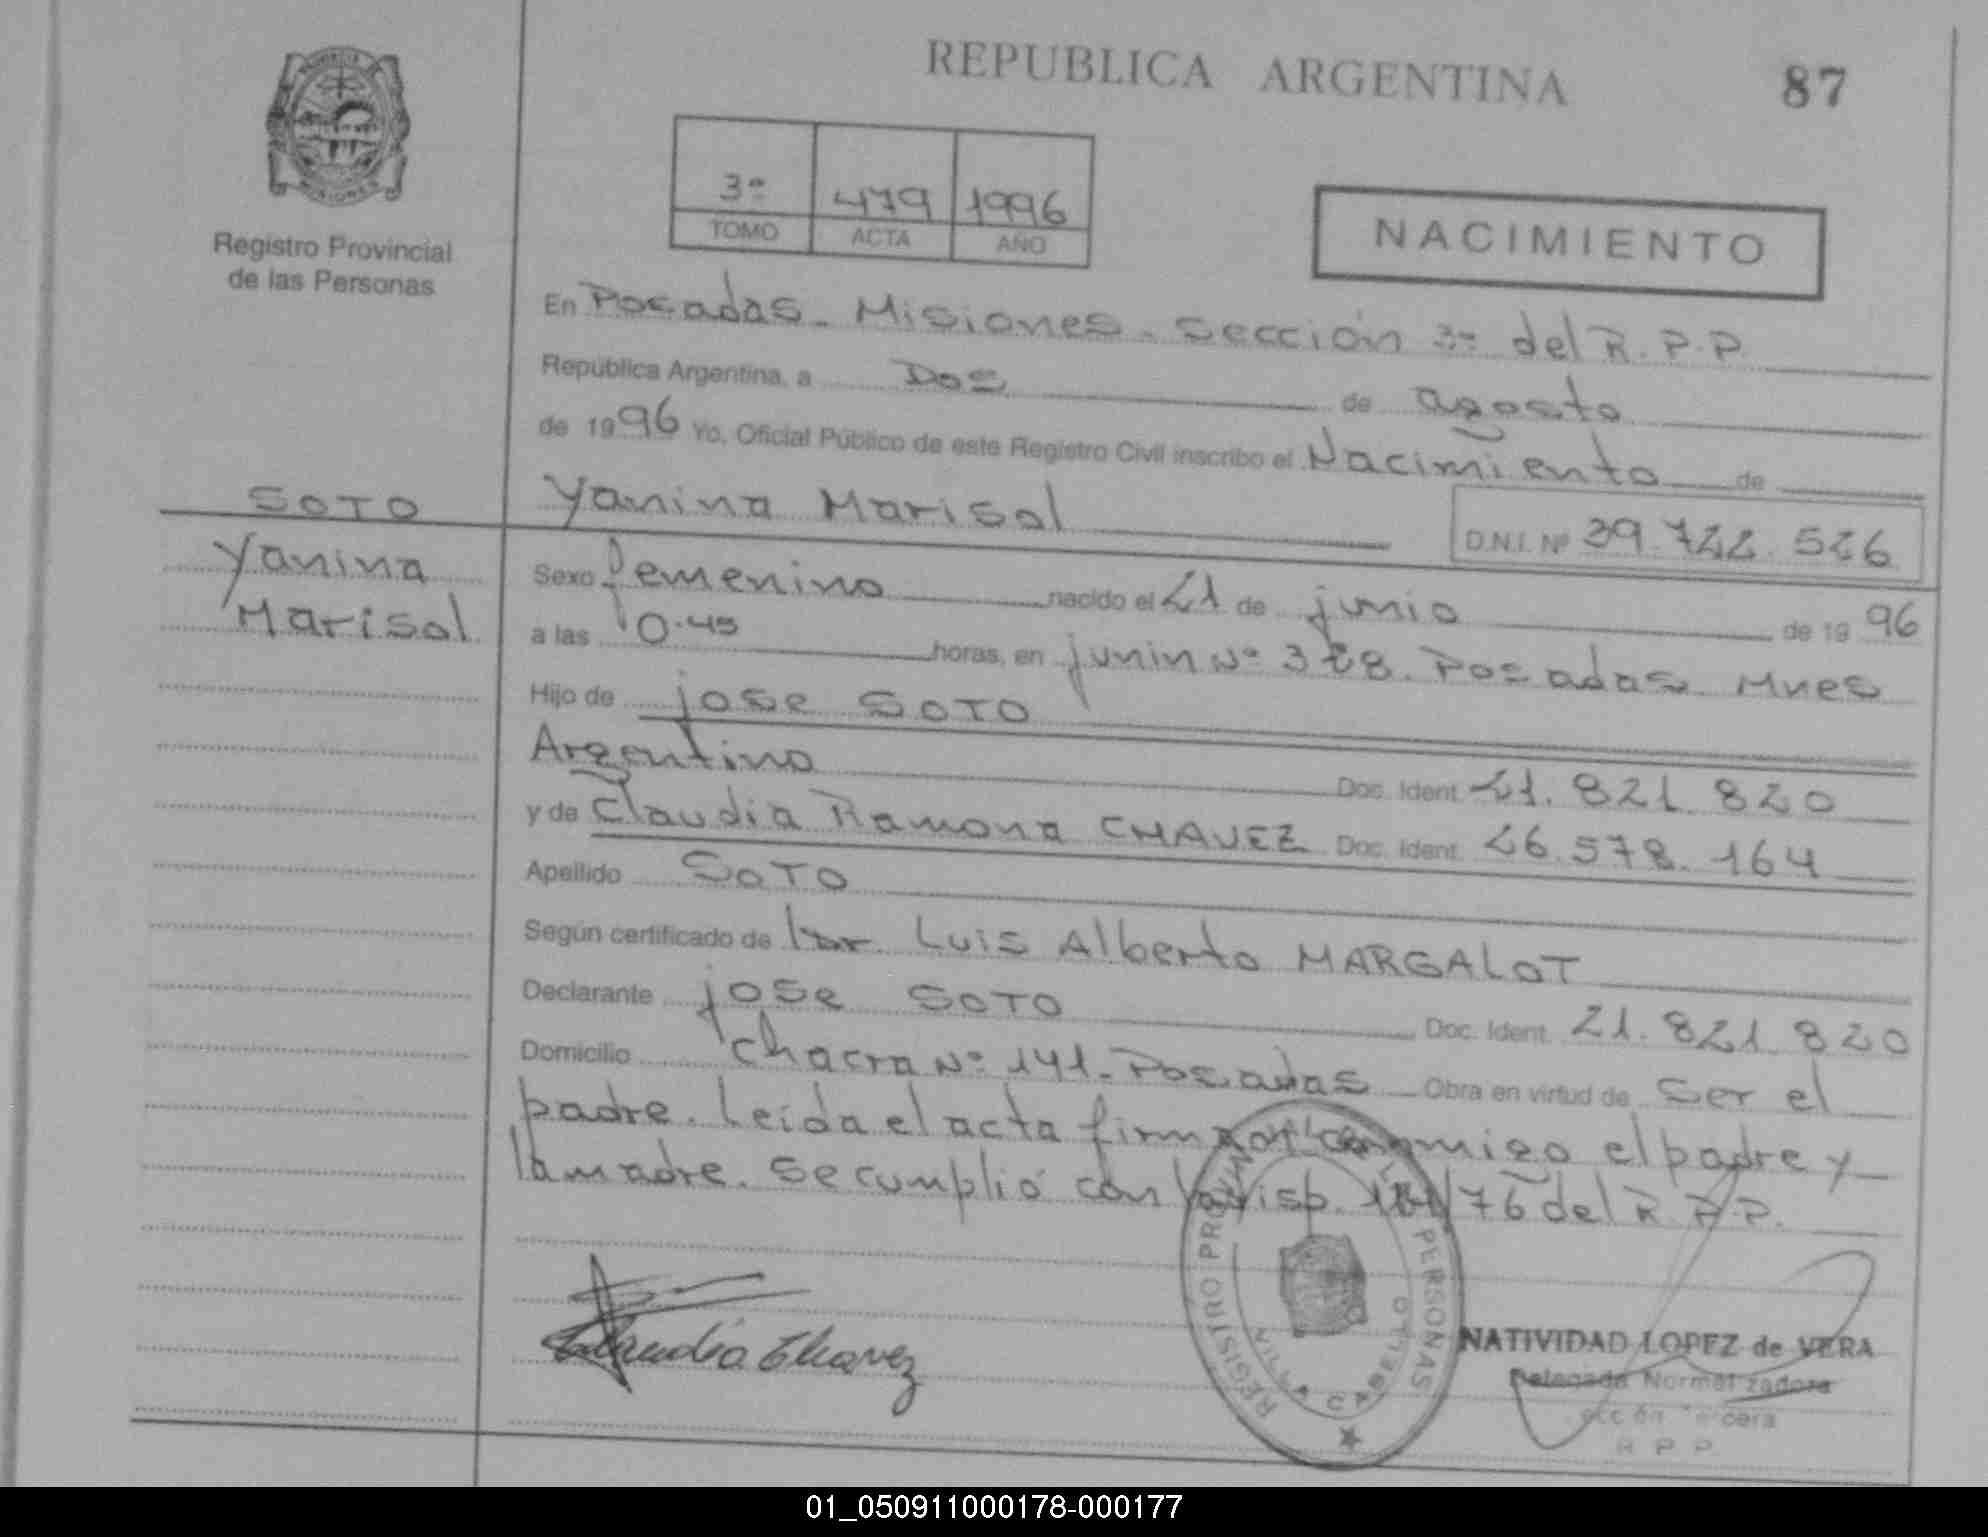 REPUBLICA ARGENTINA
87
3ª 479 1996
TOMO ACTA AÑO
NACIMIENTO
MISIONES
Registro Provincial
de las Personas
En Posadas - Misiones - Sección 3ª del R.P.P.
República Argentina, a Dos de agosto
de 1996 Yo, Oficial Público de este Registro Civil inscribo el Nacimiento de
SOTO
Yanina Marisol
D.N.I. Nº 39.722.526
Yanina
Marisol
Sexo femenino nacido el 21 de junio de 1996
a las 0.45 horas, en junin Nº 368. Posadas Mnes
Hijo de jose SOTO
Argentino Doc. Ident. 21.821.820
y de Claudia Ramona CHAVEZ Doc. Ident. 26.578.164
Apellido SOTO
Según certificado de Luis Alberto MARGALOT
Declarante jose SOTO Doc. Ident. 21.821.820
Domicilio Chacra Nº 141 - Posadas Obra en virtud de ser el
padre. Leida el acta firman conmigo el padre y
la madre. Se cumplió con la Disp. /76 del R.P.P.
Claudia Chavez
REGISTRO PROVIN PERSONAS
VILLA CABELLO
NATIVIDAD LOPEZ de VERA
Delegada Normalizadora
R P P
01_050911000178-000177